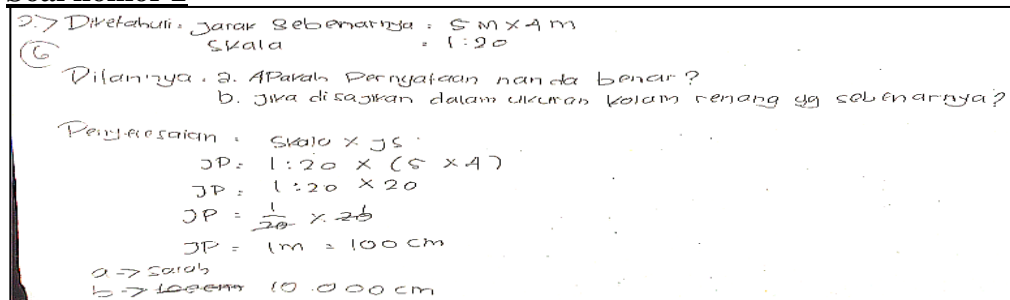 Soal nomor 2
2.> Diketahui: Jarak Sebenarnya : 5 M x 4 m
Skala : 1 : 20
6
Ditannya. a. APakah Pernyataan nanda benar?
b. Jika disajikan dalam ukuran kolam renang yg sebenarnya?
Penyelesaian : Skala x JS.
JP: 1:20 x (5 x 4)
JP : 1:20 x 20
JP = 1/20 x 20
JP = 1m = 100 cm
a -> salah
b -> 10.000 cm